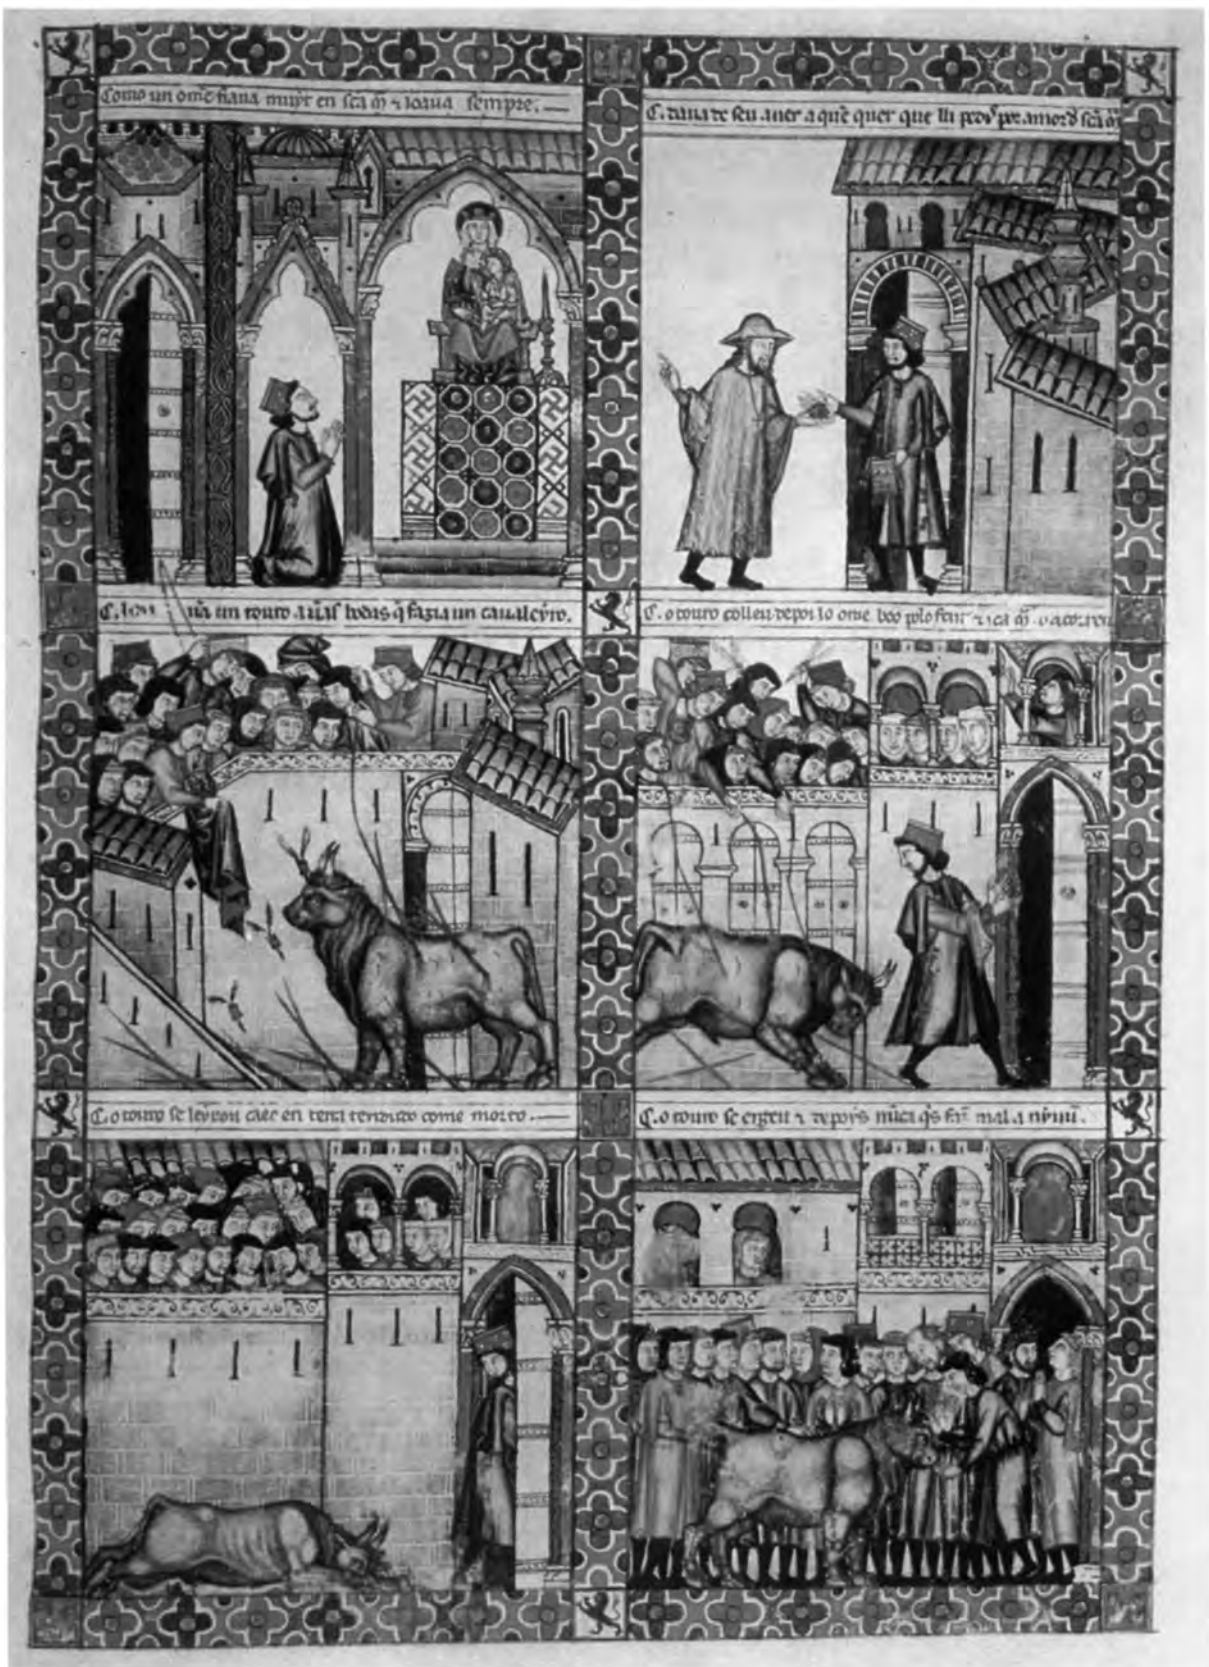 Como un ome fiaua muyt en sca m̃ ⁊ loaua sempre.
C. daua de seu auer a quẽ quer que lli pedꝰ por amor d̕ sca m̃
C. un touro a hũas uodas q̃ fazia un caualeyro.
C. o touro colleu depos lo ome boo polo ferir ⁊ sca m̃ o acorreu
C. o touro se leyxou caer en terra tendudo come morto.
C. o touro se ergeu ⁊ depoys nũca q̕s fazer mal a nẽ